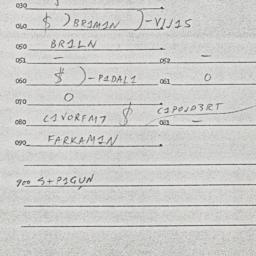 030
040 $ ) BR1M1N ) - V1J1S
050 BR1LN
051 — 052 —
060 $ ) - P1DAL1 061 0
070 0
080 C1VORFM7 $ C1POJP3RT
081 —
090 FARKAM1N
900 S+P1GUN